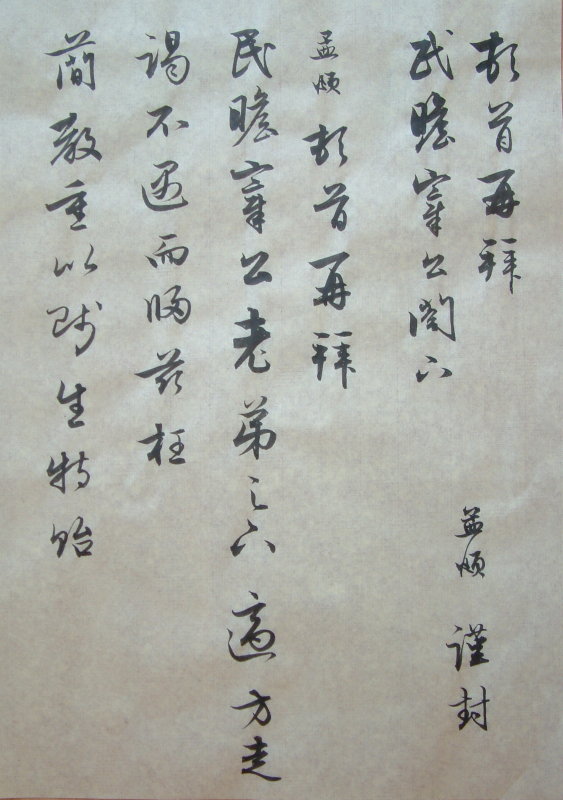 頓首再拜
孟頫 謹封
民瞻宰公閣下
孟頫頓首再拜
民瞻宰公老弟足下 適方走
謁不遇而歸茲枉
簡教重以賤生特貽